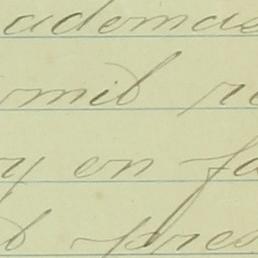 ademas
mil re
y en fa
b pres